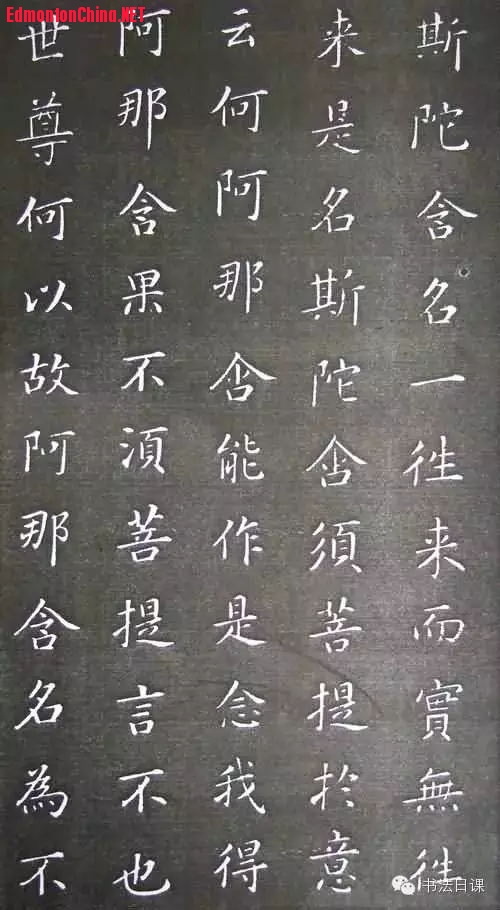 EdmontonChina.NET
斯陀含名一往来而實無往
来是名斯陀含須菩提於意
云何阿那含能作是念我得
阿那含果不湏菩提言不也
世尊何以故阿那含名為不
书法日课